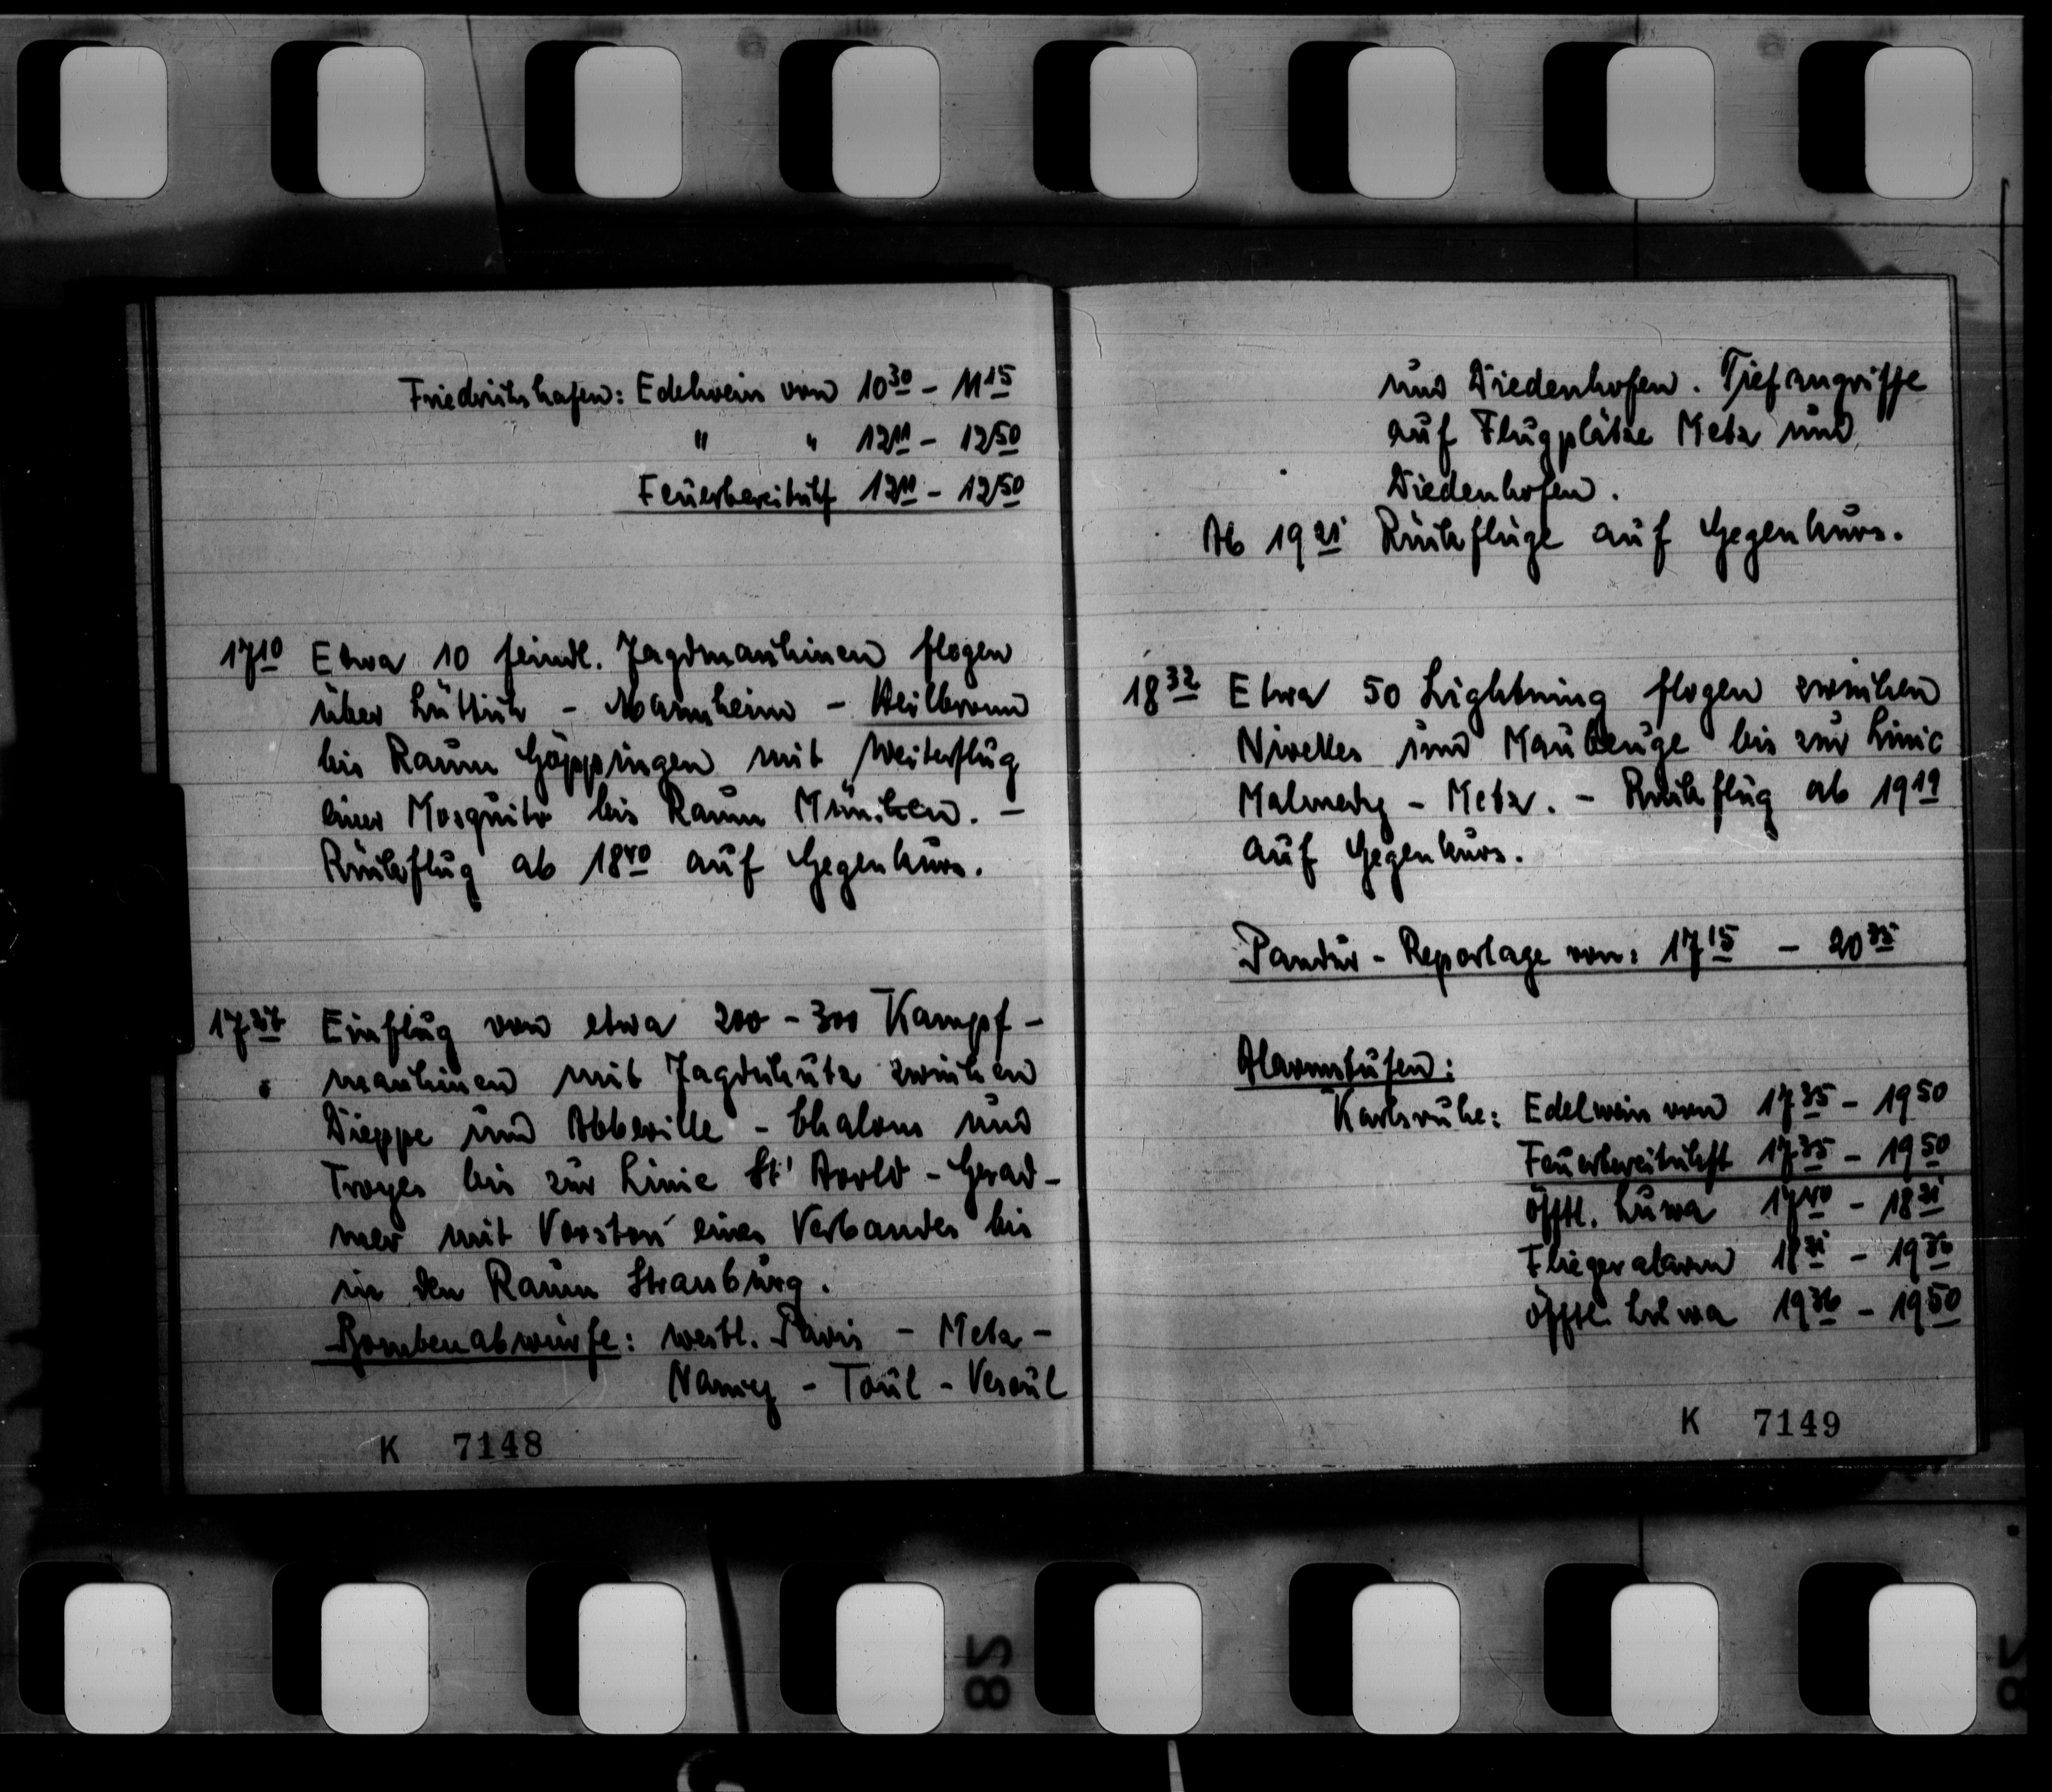 Friedrichshafen: Edelweiss von 10³⁰ - 11¹⁵
" " 12¹¹ - 12⁵⁰
Feuerbereitschft 12¹¹ - 12⁵⁰
17¹⁰ Etwa 10 feindl. Jagdmaschinen flogen
über Lüttich - Mannheim - Heilbronn
bis Raum Göppingen mit Weiterflug
einer Mosquito bis Raum München. -
Rückflug ab 18⁴⁰ auf Gegenkurs.
Einflug von etwa 200 - 300 Kampf-
maschinen mit Jagdschutz zwischen
Dieppe und Abbeville - Chalons und
Troyes bis zur Linie St' Avold - Gerad-
mer mit Vorstoss eines Verbandes bis
in den Raum Strassburg.
Bombenabwürfe: westl. Paris - Metz -
Nancy - Toul - Vesoul
K 7148
und Diedenhofen. Tiefangriffe
auf Flugplätze Metz und
Diedenhofen.
Ab 19²¹ Rückflüge auf Gegenkurs.
18³² Etwa 50 Lightning flogen zwischen
Nivelles und Maubeuge bis zur Linie
Malmedy - Metz. - Rückflug ab 19¹⁹
auf Gegenkurs.
Pandur - Reportage von: 17¹⁵ - 20³⁵
Alarmstufen:
Karlsruhe: Edelweiss von 17³⁵ - 19⁵⁰
Feuerbereitschft 17³⁵ - 19⁵⁰
öfftl. Luwa 17⁴⁰ - 18³¹
Fliegeralarm 18³¹ - 19³⁶
öfftl. Luwa 19³⁶ - 19⁵⁰
K 7149
82